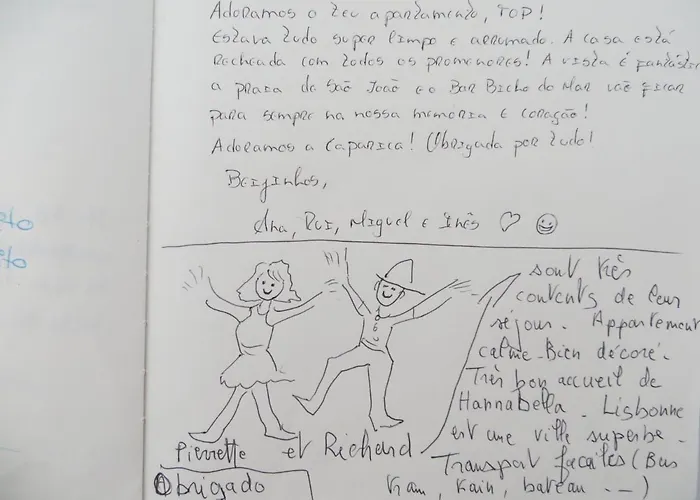 Adoramos o teu apartamento, TOP!
Estava tudo super limpo e arrumado. A casa está
recheada com todos os promenores! A vista é fantástic
a praia de São João e o Bar Bicho do Mar vão ficar
para sempre na nossa memória e coração!
Adoramos a Caparica! Obrigada por tudo!
Beijinhos,
Ana, Rui, Miguel e Inês ♡ ☺
sont très
contents de leur
séjour. Appartement
calme. Bien décoré.
Très bon accueil de
Hannabella. Lisbonne
est une ville superbe.
Transport faciles (Bus
tram, train, bateau ...)
Pierrette et Richard
Obrigado